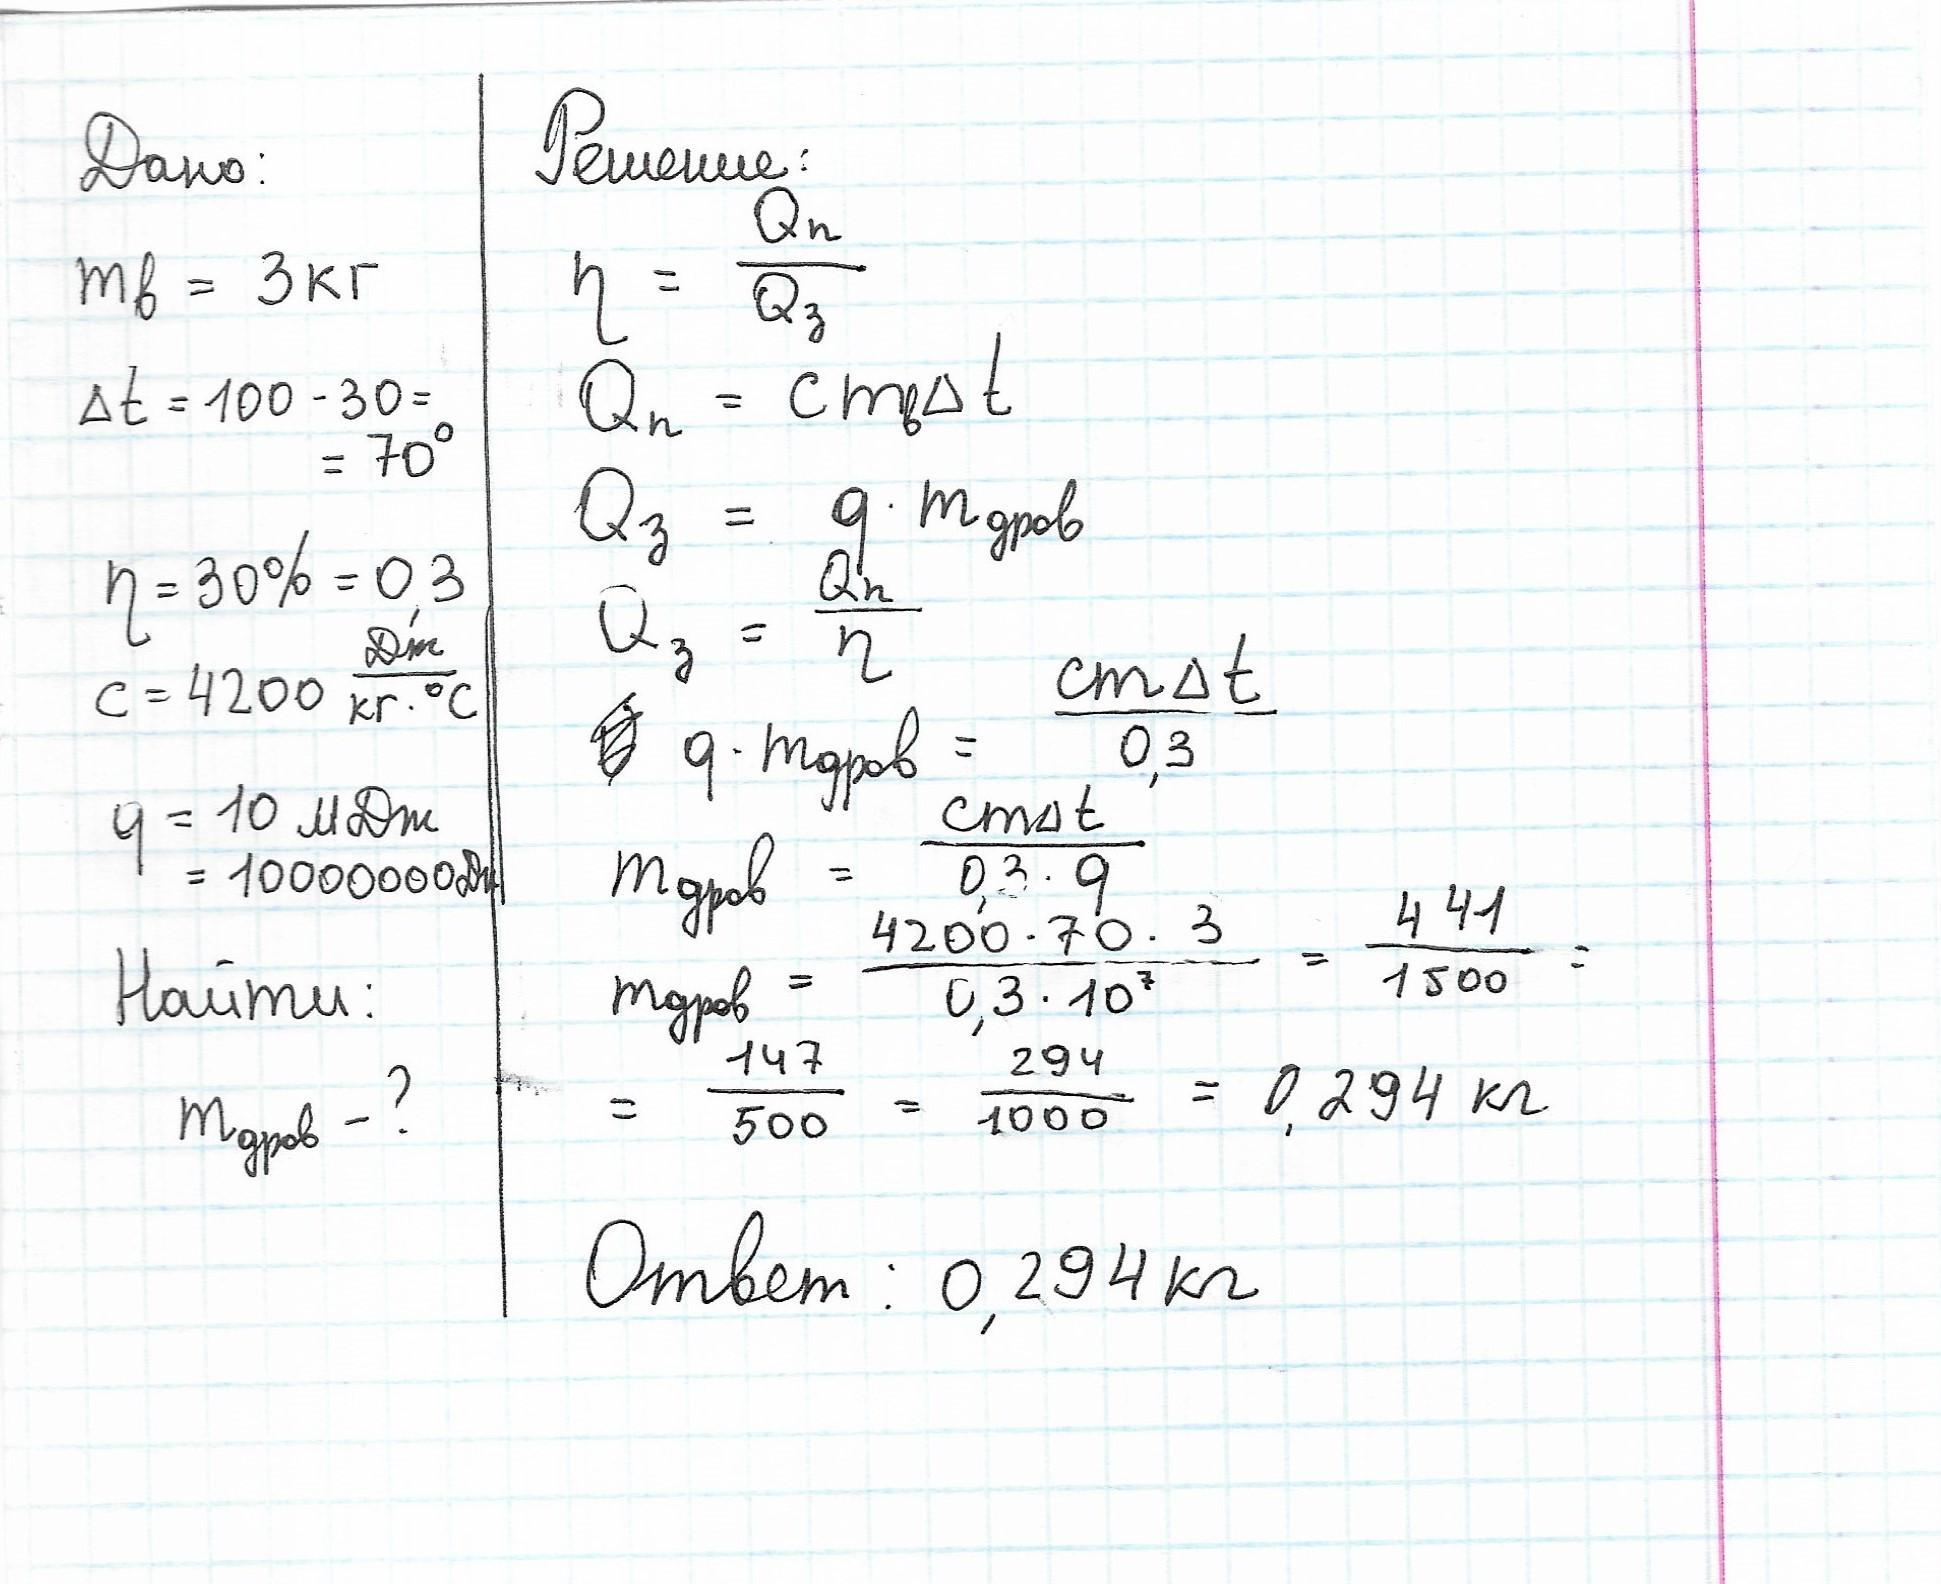 Дано:
mв = 3 кг
Δt = 100 - 30 =
= 70°
η = 30% = 0,3
c = 4200 Дж/кг·°C
q = 10 МДж
= 10000000Дж
Найти:
mдров - ?
Решение:
η = Qп/Qз
Qп = c mв Δt
Qз = q · mдров
Qз = Qп/η
q · mдров = cmΔt/0,3
mдров = cmΔt/0,3 · q
mдров = 4200 · 70 · 3/0,3 · 10⁷ = 441/1500 =
= 147/500 = 294/1000 = 0,294 кг
Ответ: 0,294 кг